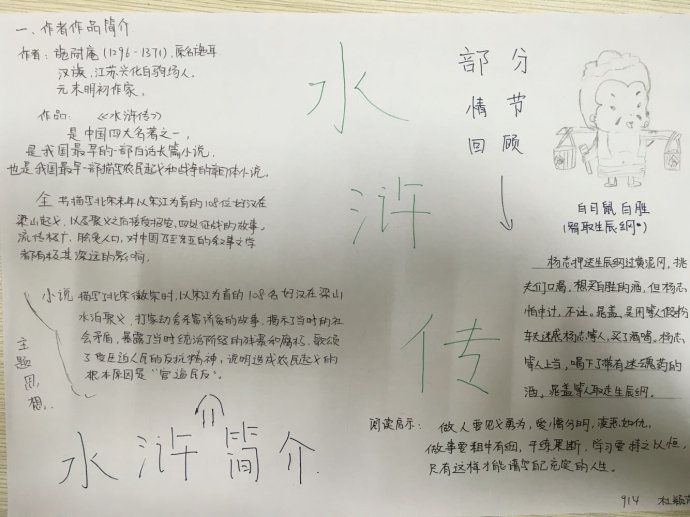 一、作者作品简介
作者：施耐庵(1296-1371)，原名施耳
汉族，江苏兴化白驹场人，
元末明初作家。
作品：《水浒传》
是中国四大名著之一，
是我国最早的一部白话长篇小说，
也是我国最早一部描写农民起义和战争的章回体小说。
全书描写北宋末年以宋江为首的108位好汉在
梁山起义，以及聚义之后接受招安，四处征战的故事。
流传极广，脍炙人口，对中国乃至东亚的叙事文学
都有极其深远的影响。
主题思想
小说描写北宋徽宗时，以宋江为首的108名好汉在梁山
水泊聚义，打家劫舍杀富济贫的故事，揭示了当时的社
会矛盾，暴露了当时统治阶级的残暴和腐朽，歌颂
了受压迫人民的反抗精神，说明造成农民起义的
根本原因是“官逼民反”。
水浒简介
水浒传
部分
情节
回顾
白日鼠白胜
(智取生辰纲)
杨志押送生辰纲过黄泥冈，挑
夫们口渴，想买白胜的酒，但杨志
怕中计，不让。晁盖、吴用等人假扮
车夫迷惑杨志等人，买了酒喝。杨志
等人上当，喝下了带有迷魂药的
酒，晁盖等人取走生辰纲。
阅读启示：做人要见义勇为，爱憎分明，疾恶如仇，
做事要粗中有细，干练果断，学习要持之以恒，
只有这样才能谱写自己充实的人生。
914 杜颖